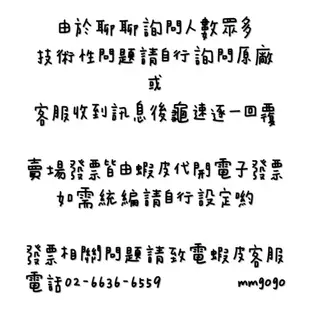 由於聊聊詢問人數眾多
技術性問題請自行詢問原廠
或
客服收到訊息後龜速逐一回覆
賣場發票皆由蝦皮代開電子發票
如需統編請自行設定喲
發票相關問題請致電蝦皮客服
電話02-6636-6559 mmgogo